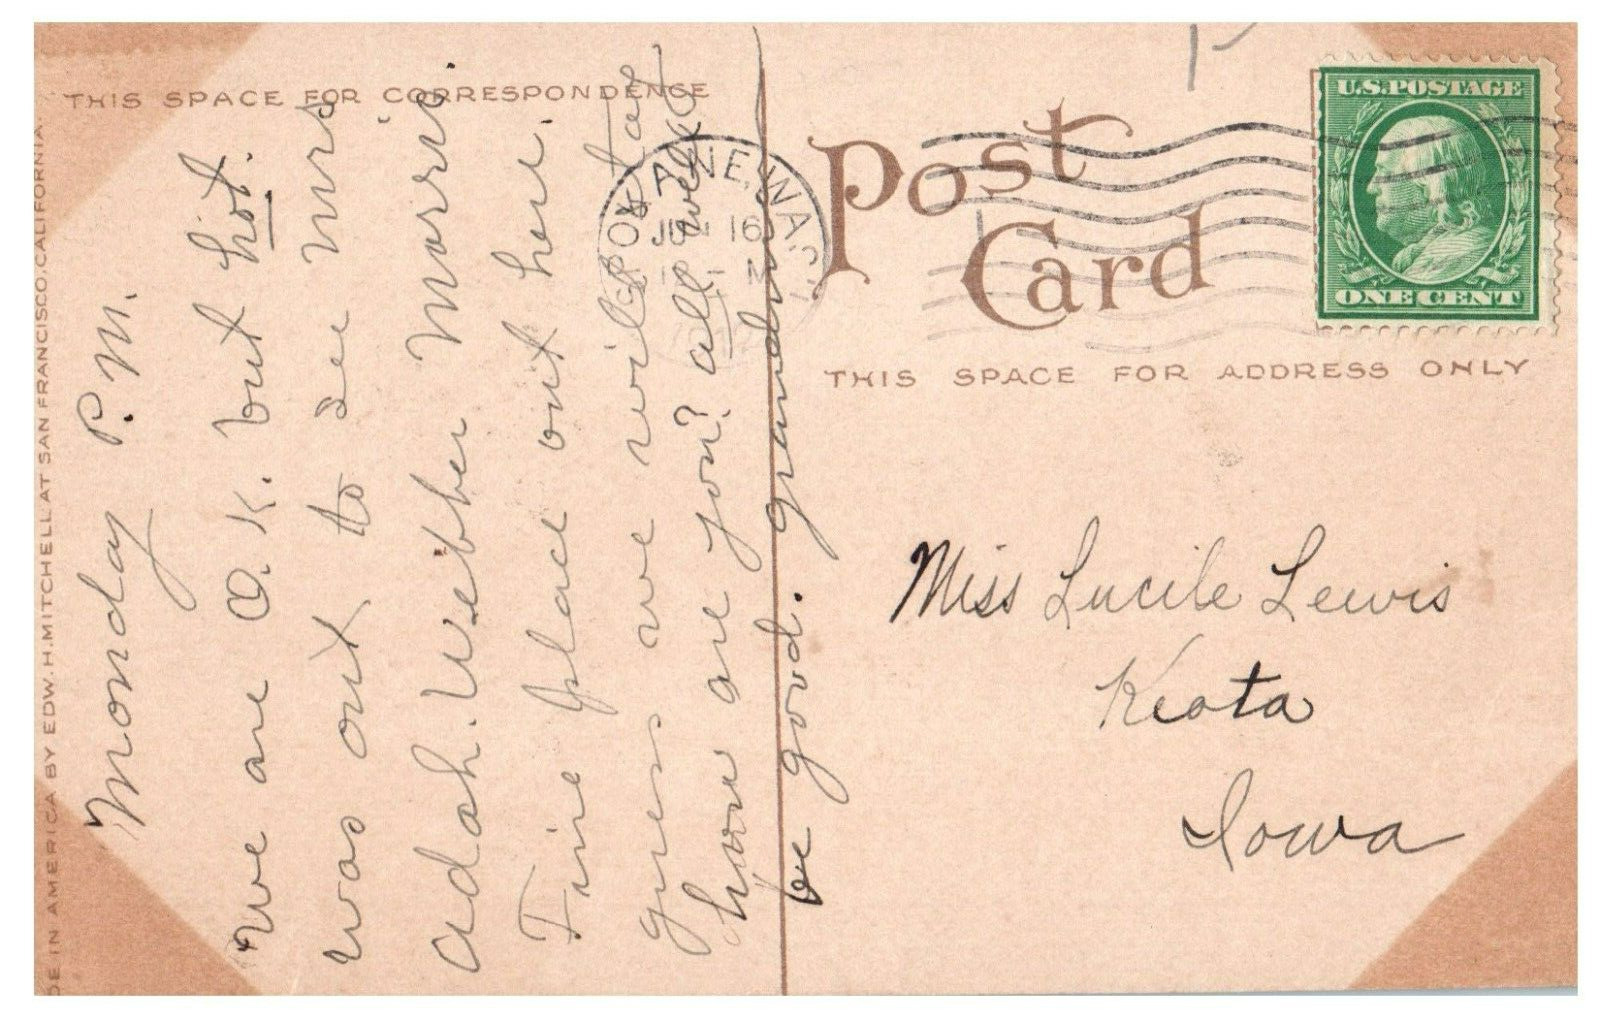 THIS SPACE FOR CORRESPONDENCE
Monday P.M.
We are O.K. but hot.
was out to see Mrs
Adah. Webber Morris.
Fine place out here.
guess we will stay
how are you? all well?
be good. grandma.
MADE IN AMERICA BY EDW. H. MITCHELL AT SAN FRANCISCO, CALIFORNIA.
SPOKANE, WASH.
16
Post
Card
U.S. POSTAGE
ONE CENT
THIS SPACE FOR ADDRESS ONLY
Miss Lucile Lewis
Keota
Iowa